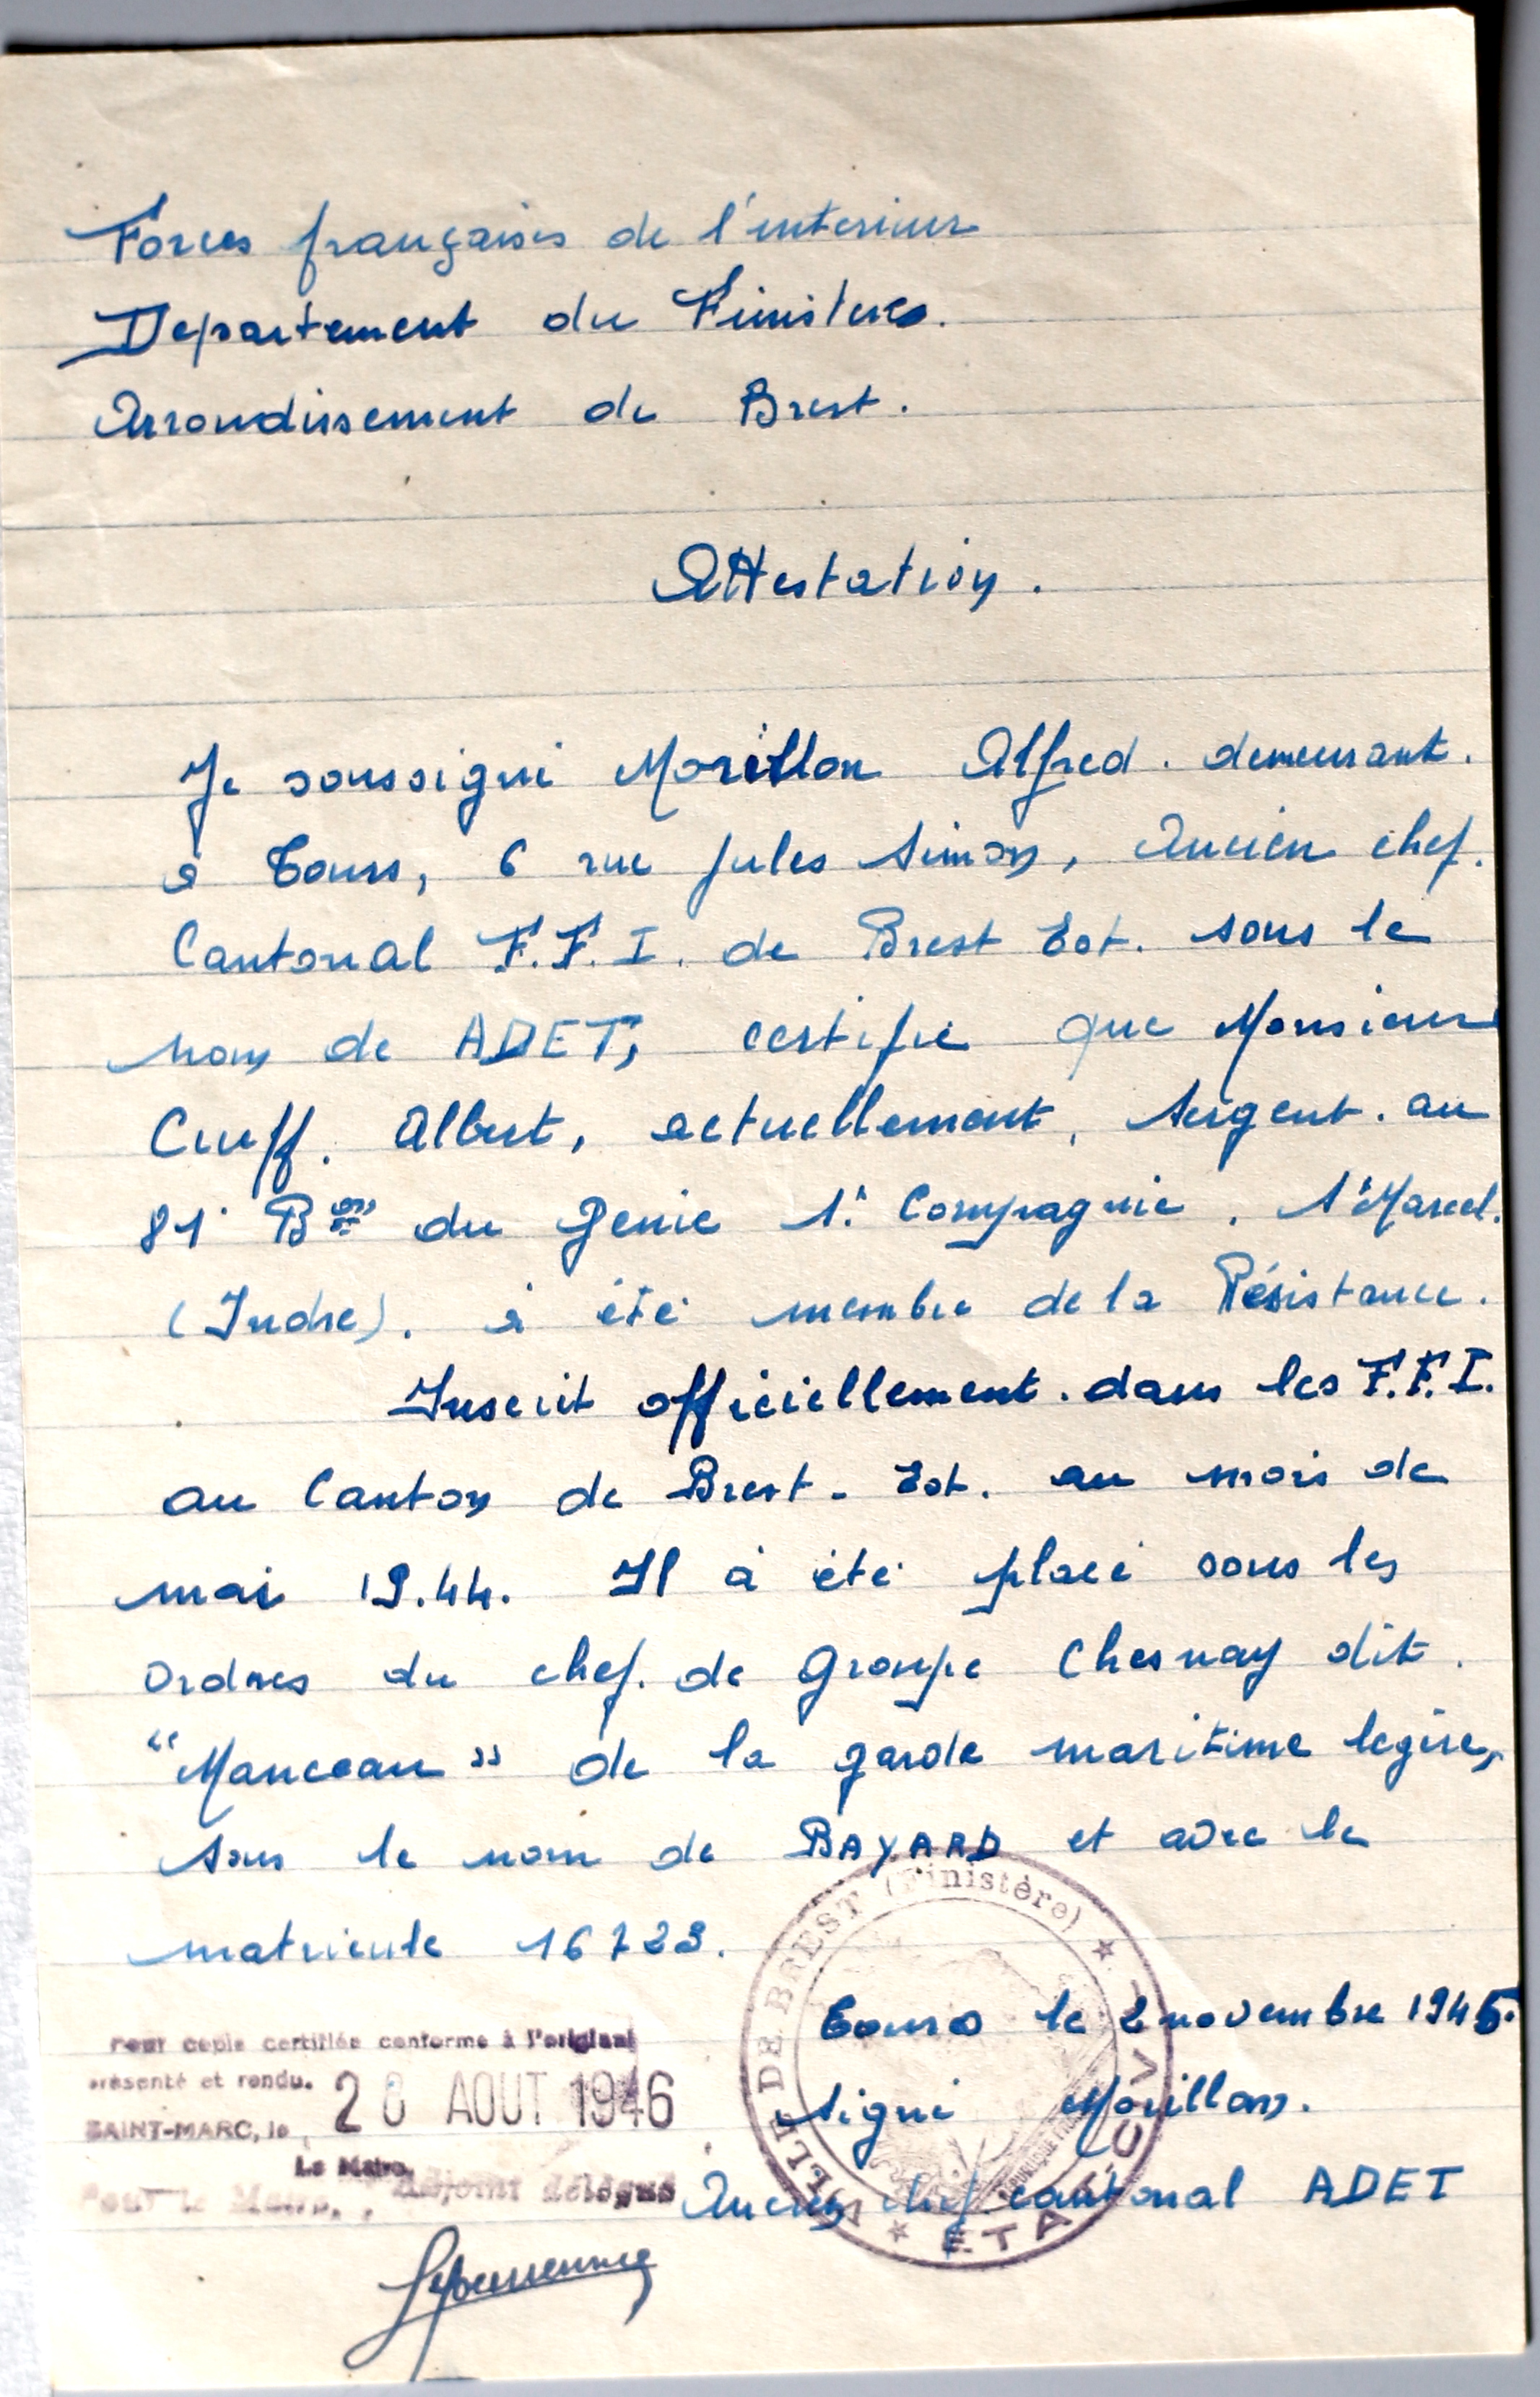 Forces françaises de l'interieur
Departement du Finistere.
Arrondissement de Brest.
Attestation.
Je soussigné Morillon Alfred. demeurant.
à Tours, 6 rue Jules Simon, Ancien chef.
Cantonal F.F.I. de Brest Est. sous le
nom de ADET, certifie que Monsieur
Cueff. Albert, actuellement, Sergent. au
81e Bon du Genie 1e Compagnie. St Marcel.
(Indre). à été membre de la Résistance.
Inscrit officiellement. dans les F.F.I.
au Canton de Brest-Est. au mois de
mai 19.44. Il à été placé sous les
ordres du chef. de Groupe Chesnay dit.
"Manceau" de la garde maritime legère,
sous le nom de BAYARD et avec le
matricule 16723.
Tours le 2 novembre 1945.
Signé Morillon.
Ancien chef cantonal ADET
VILLE DE BREST (Finistère) ★ ETAT CIVIL ★
Pour copie certifiée conforme à l'original
présenté et rendu.
SAINT-MARC, le 20 AOUT 1946
Le Maire,
Pour le Maire, Adjoint délégué